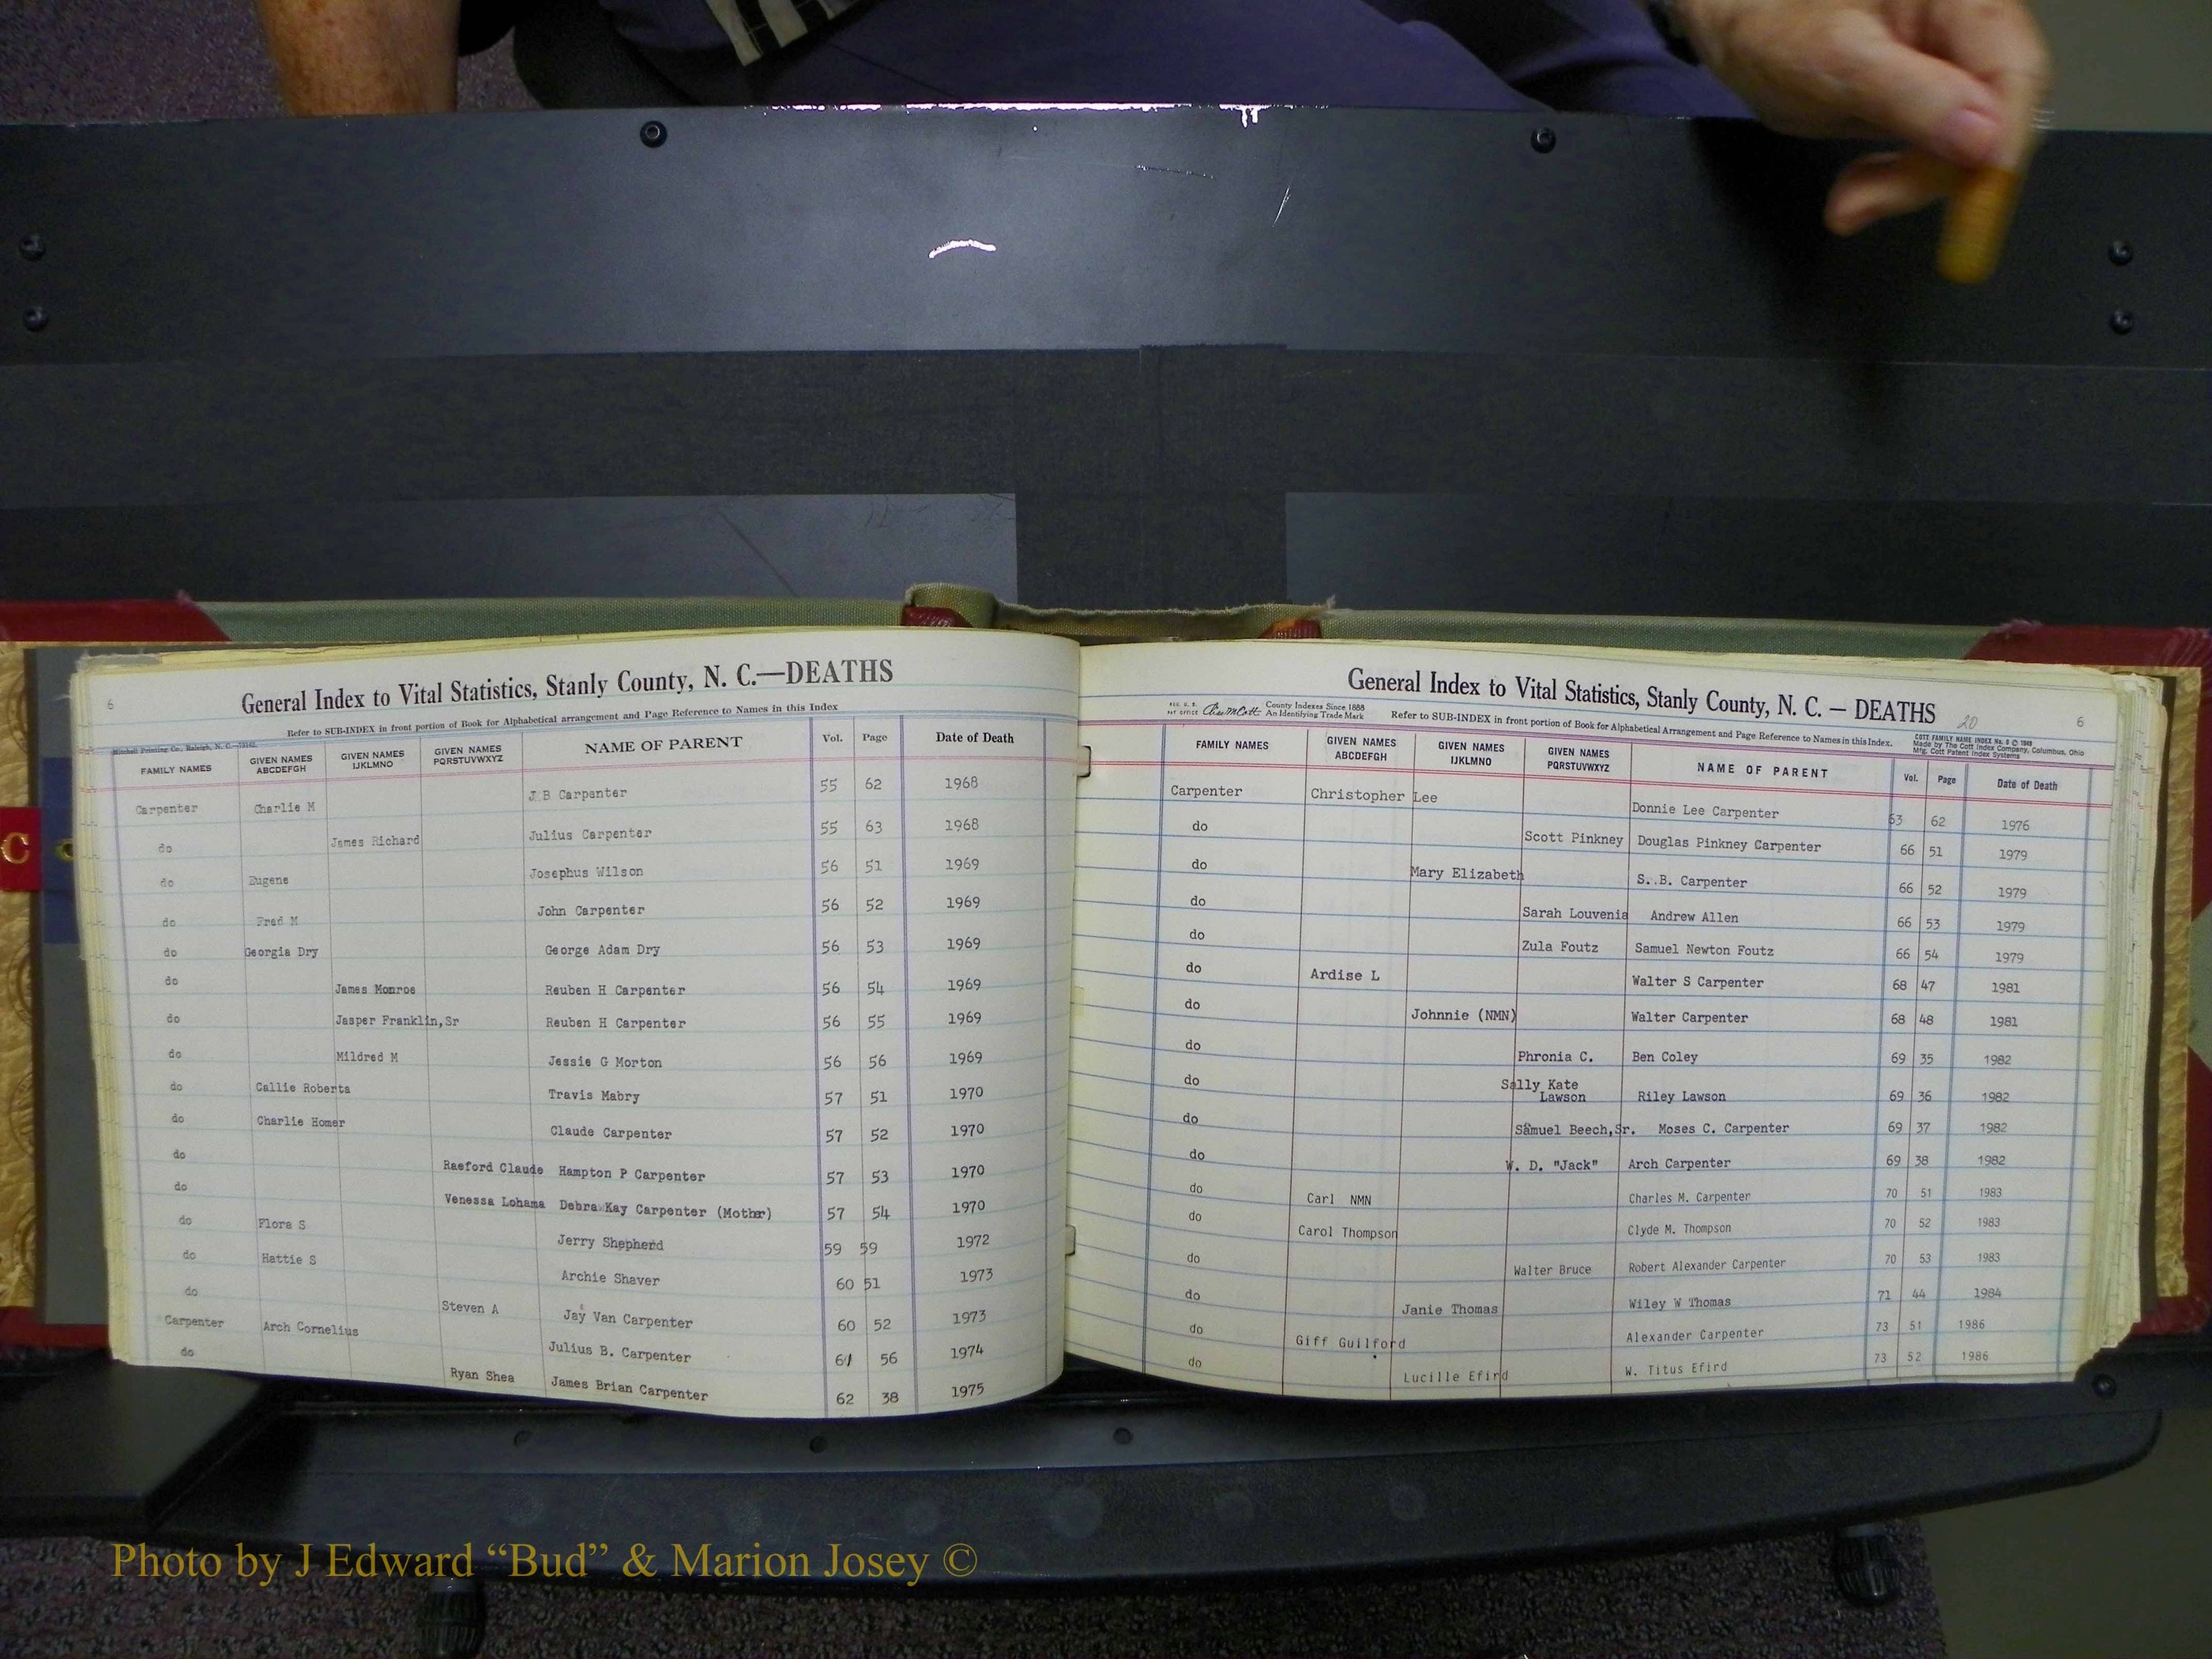 6
General Index to Vital Statistics, Stanly County, N. C.—DEATHS
Refer to SUB-INDEX in front portion of Book for Alphabetical arrangement and Page Reference to Names in this Index
Mitchell Printing Co., Raleigh, N. C.
FAMILY NAMES GIVEN NAMES ABCDEFGH GIVEN NAMES IJKLMNO GIVEN NAMES PQRSTUVWXYZ NAME OF PARENT Vol. Page Date of Death
Carpenter Charlie M J B Carpenter 55 62 1968
do James Richard Julius Carpenter 55 63 1968
do Eugene Josephus Wilson 56 51 1969
do Fred M John Carpenter 56 52 1969
do Georgia Dry George Adam Dry 56 53 1969
do James Monroe Reuben H Carpenter 56 54 1969
do Jasper Franklin,Sr Reuben H Carpenter 56 55 1969
do Mildred M Jessie G Morton 56 56 1969
do Callie Roberta Travis Mabry 57 51 1970
do Charlie Homer Claude Carpenter 57 52 1970
do Raeford Claude Hampton P Carpenter 57 53 1970
do Venessa Lohama Debra Kay Carpenter (Mother) 57 54 1970
do Flora S Jerry Shepherd 59 59 1972
do Hattie S Archie Shaver 60 51 1973
do Steven A Jay Van Carpenter 60 52 1973
Carpenter Arch Cornelius Julius B. Carpenter 61 56 1974
do Ryan Shea James Brian Carpenter 62 38 1975
C
General Index to Vital Statistics, Stanly County, N. C. — DEATHS 20 6
REG. U. S. PAT OFFICE County Indexes Since 1888 An Identifying Trade Mark
Refer to SUB-INDEX in front portion of Book for Alphabetical Arrangement and Page Reference to Names in this Index.
COTT FAMILY NAME INDEX No. 6 © 1949
Made by The Cott Index Company, Columbus, Ohio
Mfg. Cott Patent Index Systems
FAMILY NAMES GIVEN NAMES ABCDEFGH GIVEN NAMES IJKLMNO GIVEN NAMES PQRSTUVWXYZ NAME OF PARENT Vol. Page Date of Death
Carpenter Christopher Lee Donnie Lee Carpenter 63 62 1976
do Scott Pinkney Douglas Pinkney Carpenter 66 51 1979
do Mary Elizabeth S..B. Carpenter 66 52 1979
do Sarah Louvenia Andrew Allen 66 53 1979
do Zula Foutz Samuel Newton Foutz 66 54 1979
do Ardise L Walter S Carpenter 68 47 1981
do Johnnie (NMN) Walter Carpenter 68 48 1981
do Phronia C. Ben Coley 69 35 1982
do Sally Kate Lawson Riley Lawson 69 36 1982
do Samuel Beech,Sr. Moses C. Carpenter 69 37 1982
do W. D. "Jack" Arch Carpenter 69 38 1982
do Carl NMN Charles M. Carpenter 70 51 1983
do Carol Thompson Clyde M. Thompson 70 52 1983
do Walter Bruce Robert Alexander Carpenter 70 53 1983
do Janie Thomas Wiley W Thomas 71 44 1984
do Giff Guilford Alexander Carpenter 73 51 1986
do Lucille Efird W. Titus Efird 73 52 1986
Photo by J Edward “Bud” & Marion Josey ©